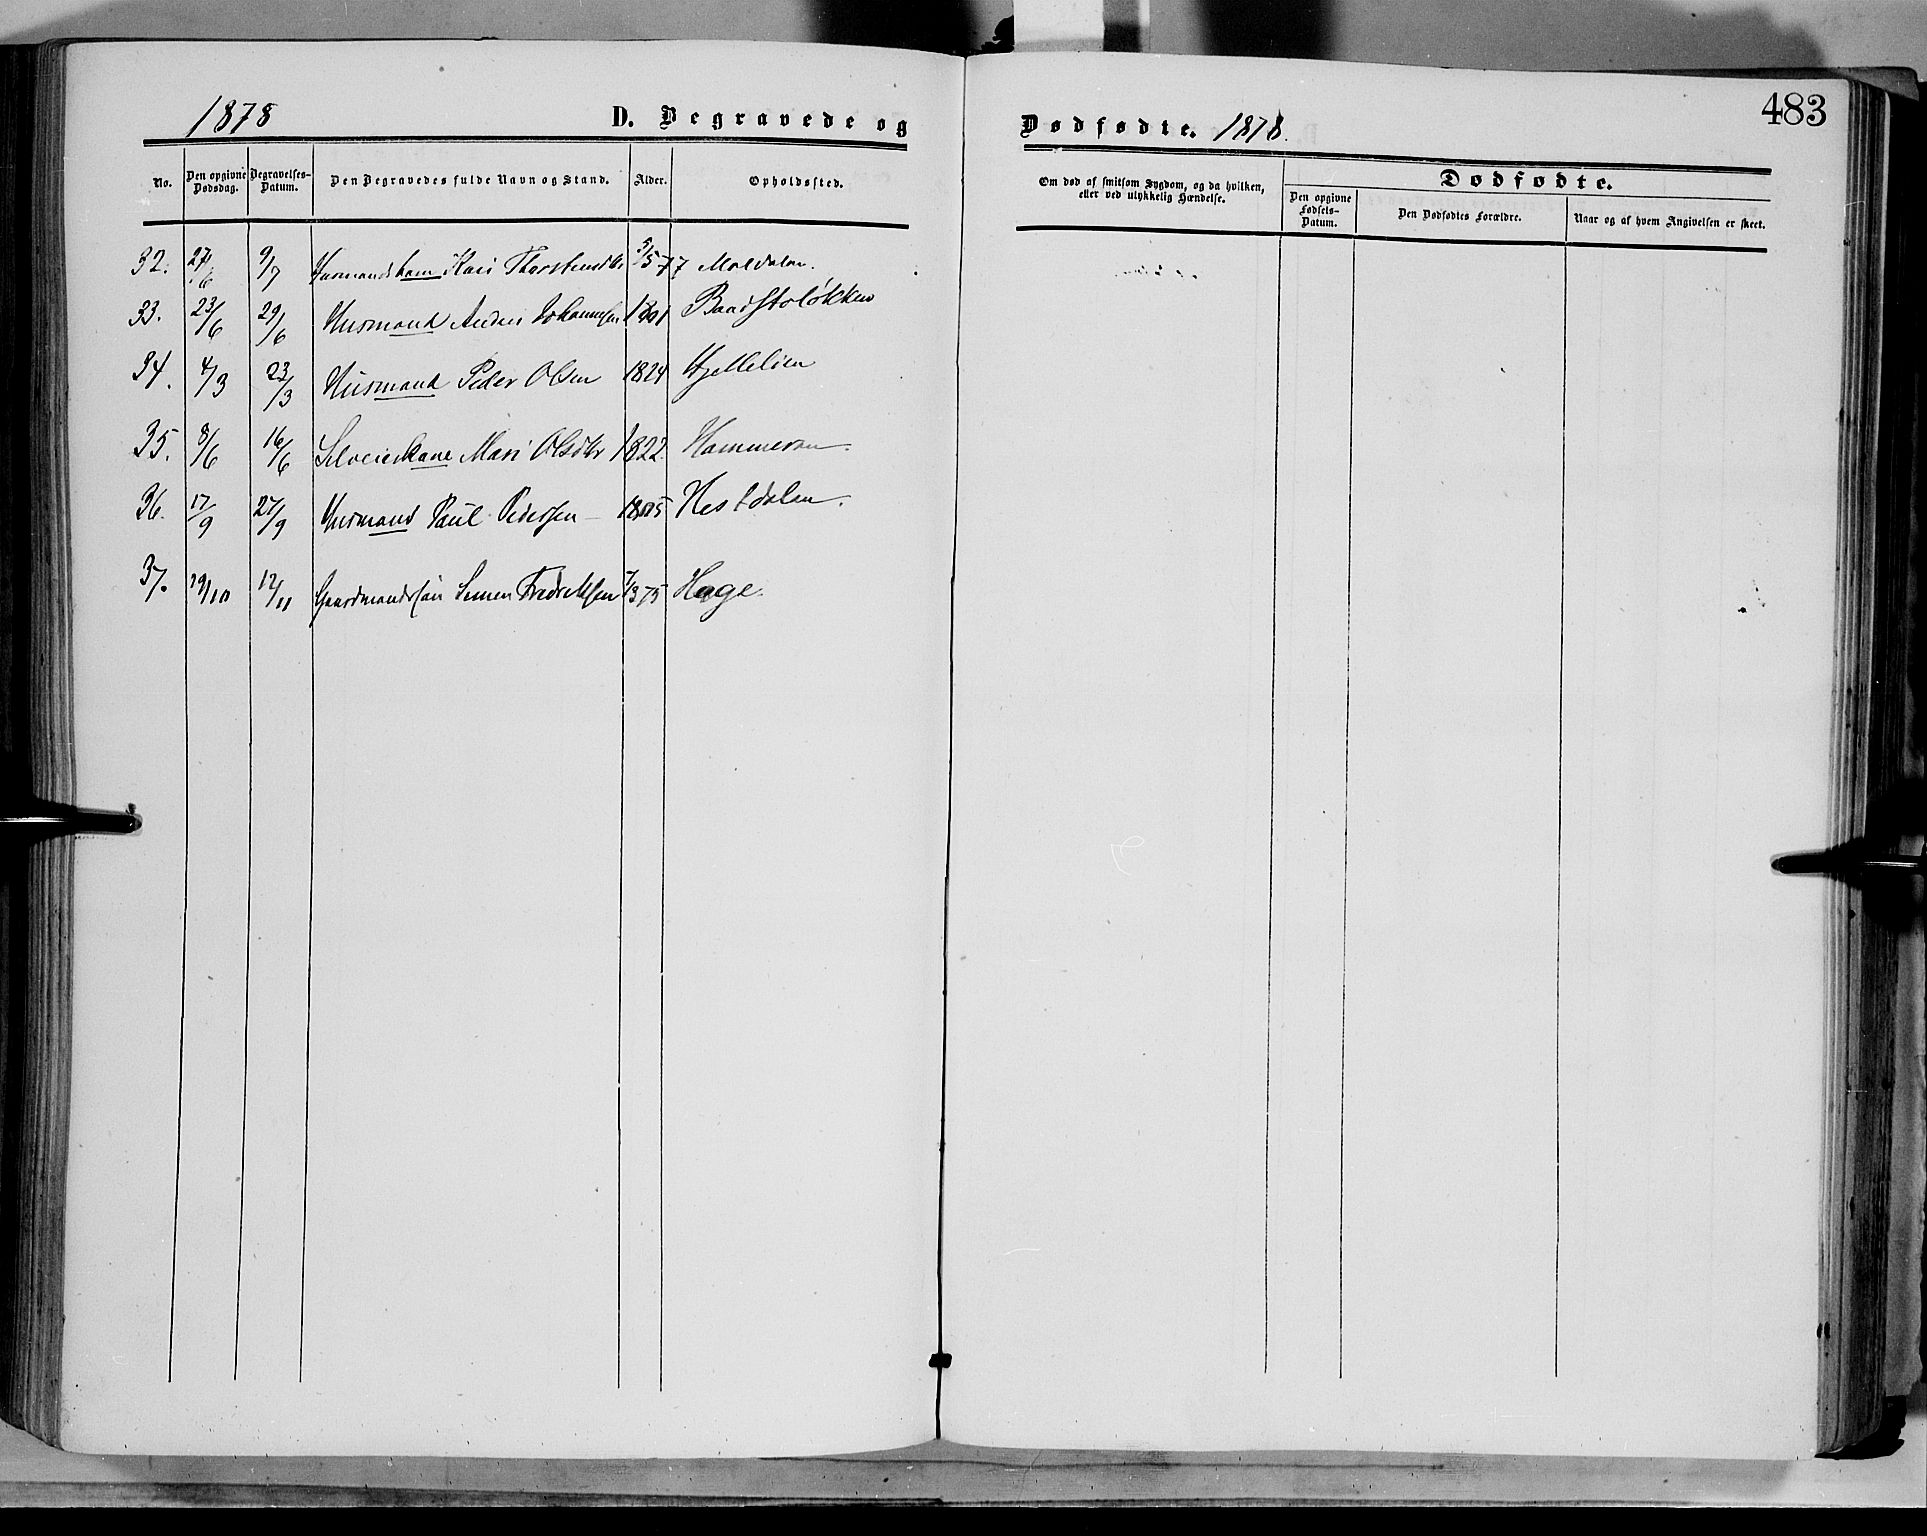 1878 D. Begravede og Dødfødte. 1878. 483
No. Den opgivne Dødsdag. Begravelses-Datum. Den Begravedes fulde Navn og Stand. Alder. Opholdssted. Om død af smitsom Sygdom, og da hvilken, eller ved ulykkelig Hændelse. Dødfødte.
Den opgivne Fødsels-Datum. Den Dødfødtes Forældre. Naar og af hvem Angivelsen er skeet.
32. 27/6 9/7 Kari 5/5 77
33. 23/6 29/6 Husmand Anders Johannesen 1801 Baadstoløkken
34. 4/3 23/3 Husmand Peder Olsen 1824 Hjelleløen
35. 8/6 16/6 Selveierkone Mari Olsdtr 1822. Hammeren.
36. 17/9 27/9 Husmand Paul Pedersen - Hestdalen.
37. 29/10 12/11 Gaardmandssøn Simen Fredriksen 7/3 75 Hage.